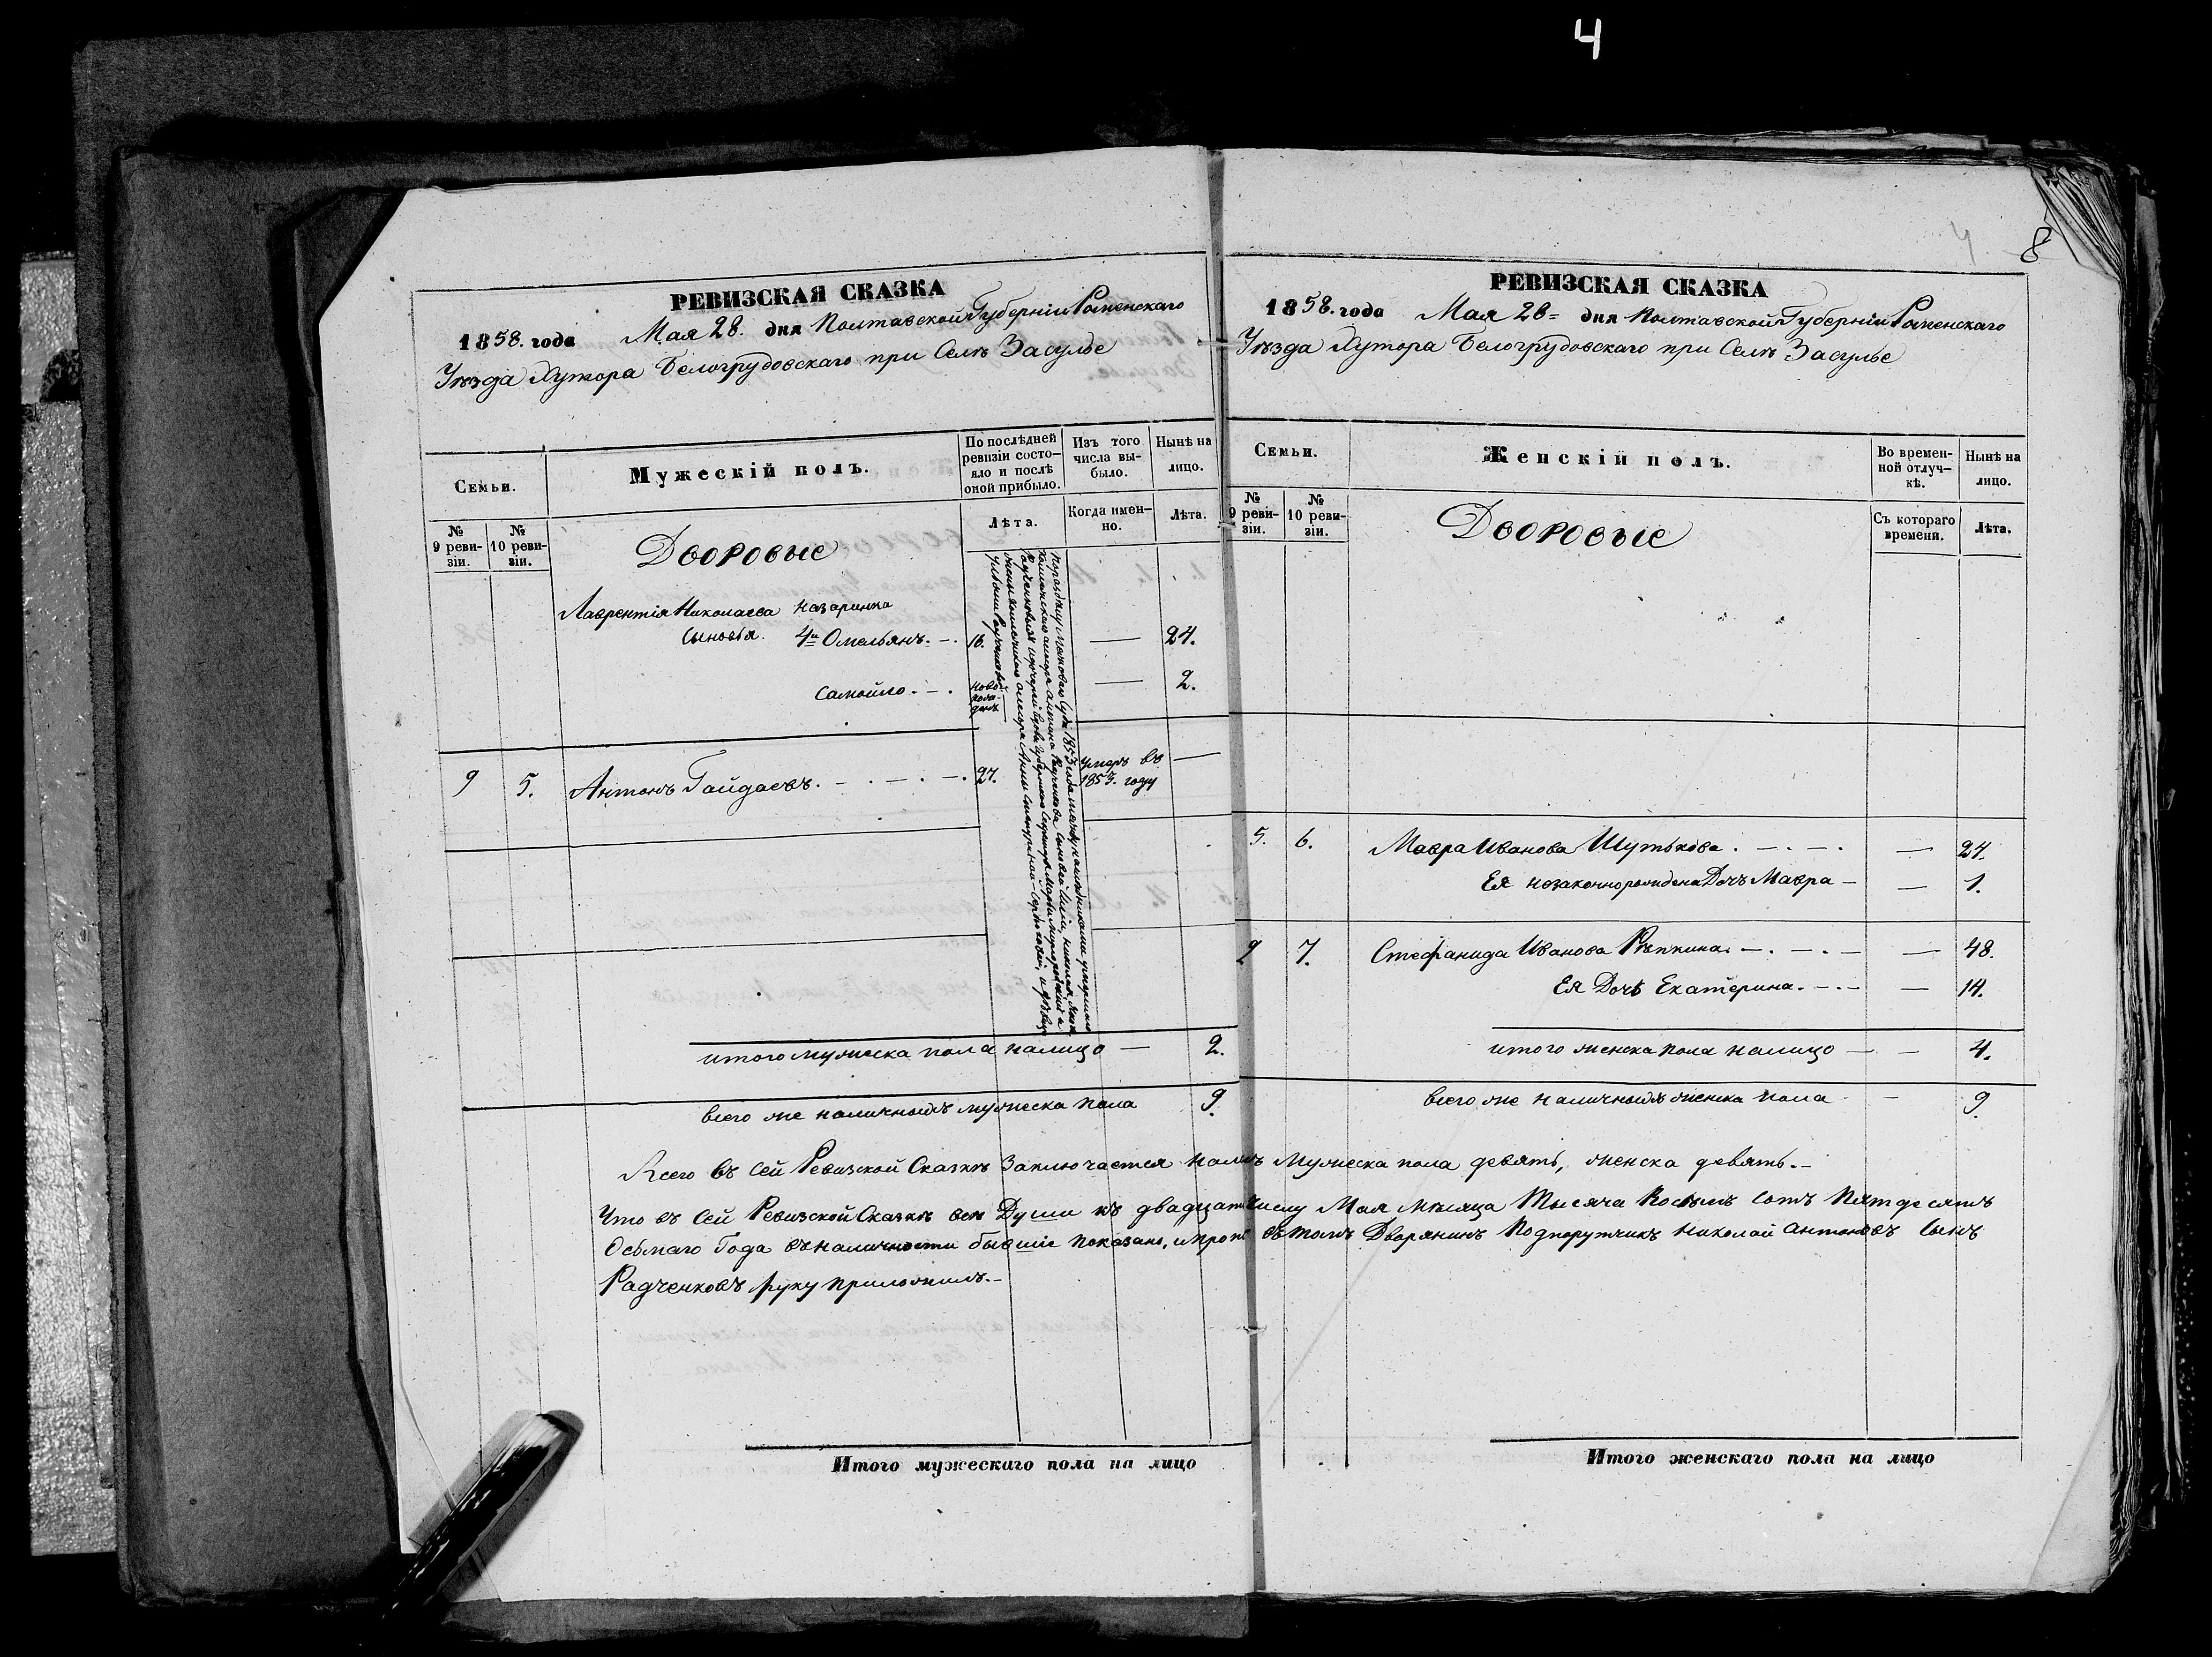 4
4
8
РЕВИЗСКАЯ СКАЗКА
1858. года Мая 28. дня Полтавской Губерніи Роменскаго
Уѣзда Хутора Белогрудовскаго при Селѣ Засулье
Семьи.
Мужескій полъ.
По послѣдней ревизіи состояло и послѣ оной прибыло.
Изъ того числа выбыло.
Нынѣ на лицо.
№ 9 ревизіи.
№ 10 ревизіи.
Лѣта.
Когда именно.
Лѣта.
Дворовые
Лаврентія Николаева Назаринка
Сыновья. 4й Омельянъ. — 16. — 24.
Самойло. — ново рожденъ — 2.
9 5. Антонъ Гайдаевъ. — 27. Умеръ въ 1853. году —
итого мужеска пола налицо — 2.
всего же наличныхъ мужеска пола 9.
РЕВИЗСКАЯ СКАЗКА
1858. года Мая 28 = дня Полтавской Губерніи Роменскаго
Уѣзда Хутора Белогрудовскаго при Селѣ Засулье
Семьи.
Женскій полъ.
Во временной отлучкѣ.
Нынѣ на лицо.
№ 9 ревизіи.
№ 10 ревизіи.
Съ котораго времени.
Лѣта.
Дворовые
5. 6. Мавра Иванова Шутькова. — — 24.
Ея незаконнорожденна Дочь Мавра — — 1.
9 7. Стефанида Иванова Рѣпкина. — — 48.
Ея Дочь Екатерина. — — 14.
итого женска пола налицо — — 4.
всего же наличныхъ женска пола — 9.
Всего въ сей Ревизской Сказкѣ Заключается мужеска пола девять, женска девять. —
Что въ сей Ревизской Сказкѣ все Души къ числу Мая мѣсяца Тысяча Восемь сотъ Пятдесятъ
Осьмаго Года въ наличности бывшіе показано, въ томъ Дворянинъ Подпоручикъ Николай Антоновъ Сынъ
Радченковъ руку приложилъ. —
Итого мужескаго пола на лицо
Итого женскаго пола на лицо